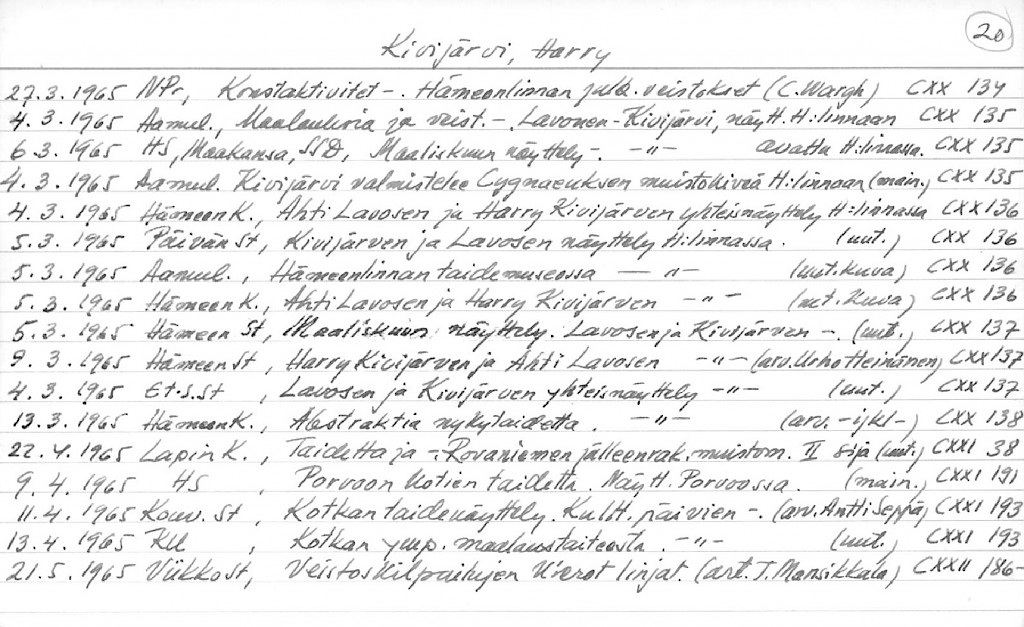 20
Kivijärvi, Harry
27.3.1965 NPr, Konstaktivitet -. Hämeenlinnan julk. veistokset (C. Wargh) CXX 134
4.3.1965 Aamul., Maalauksia ja veist. -. Lavonen-Kivijärvi, näytt. H:linnaan CXX 135
6.3.1965 HS, Maakansa, SSD, Maaliskuun näyttely -. -"- avattu H:linnassa. CXX 135
4.3.1965 Aamul. Kivijärvi valmistelee Cygnaeuksen muistokiveä H:linnaan (main.) CXX 135
4.3.1965 Hämeen K., Ahti Lavosen ja Harry Kivijärven yhteisnäyttely H:linnassa CXX 136
5.3.1965 Päivän St, Kivijärven ja Lavosen näyttely H:linnassa. (uut.) CXX 136
5.3.1965 Aamul., Hämeenlinnan taidemuseossa — -"- (uut. kuva) CXX 136
5.3.1965 Hämeen K., Ahti Lavosen ja Harry Kivijärven -"- (uut. kuva) CXX 136
5.3.1965 Hämeen St, Maaliskuun näyttely. Lavosen ja Kivijärven -. (uut.) CXX 137
9.3.1965 Hämeen St, Harry Kivijärven ja Ahti Lavosen -"- (arv. Urho Heinänen) CXX 137
4.3.1965 Et-S.St, Lavosen ja Kivijärven yhteisnäyttely -"- (uut.) CXX 137
13.3.1965 Hämeen K., Abstraktia nykytaidetta. -"- (arv. -ijkl-) CXX 138
22.4.1965 Lapin K., Taidetta ja -. Rovaniemen jälleenrak. muistom. II sija (uut.) CXXI 38
9.4.1965 HS, Porvoon kotien taidetta. Näytt. Porvoossa. (main.) CXXI 191
11.4.1965 Kouv. St, Kotkan taidenäyttely. Kultt. päivien -. (arv. Antti Seppä) CXXI 193
13.4.1965 KU, Kotkan ymp. maalaustaiteesta. -"- (uut.) CXXI 193
21.5.1965 Viikkost, Veistoskilpailujen kierot linjat. (art. T. Mansikkala) CXXII 186-